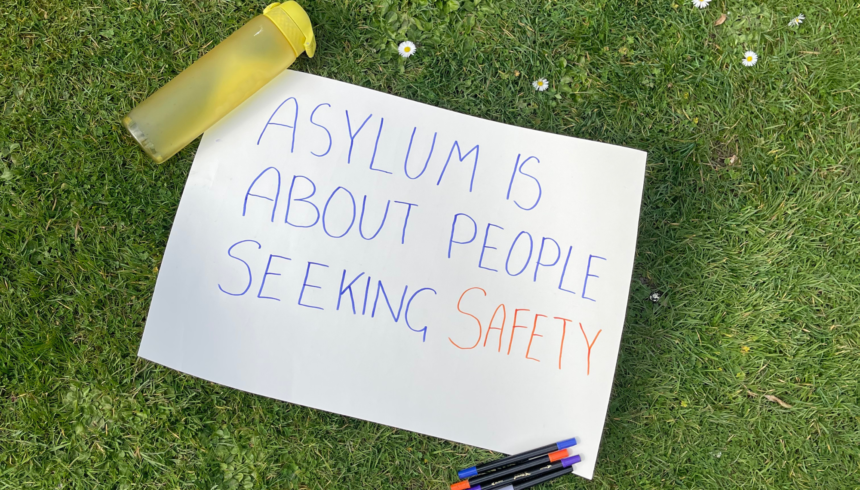 ASYLUM IS
ABOUT PEOPLE
SEEKING SAFETY